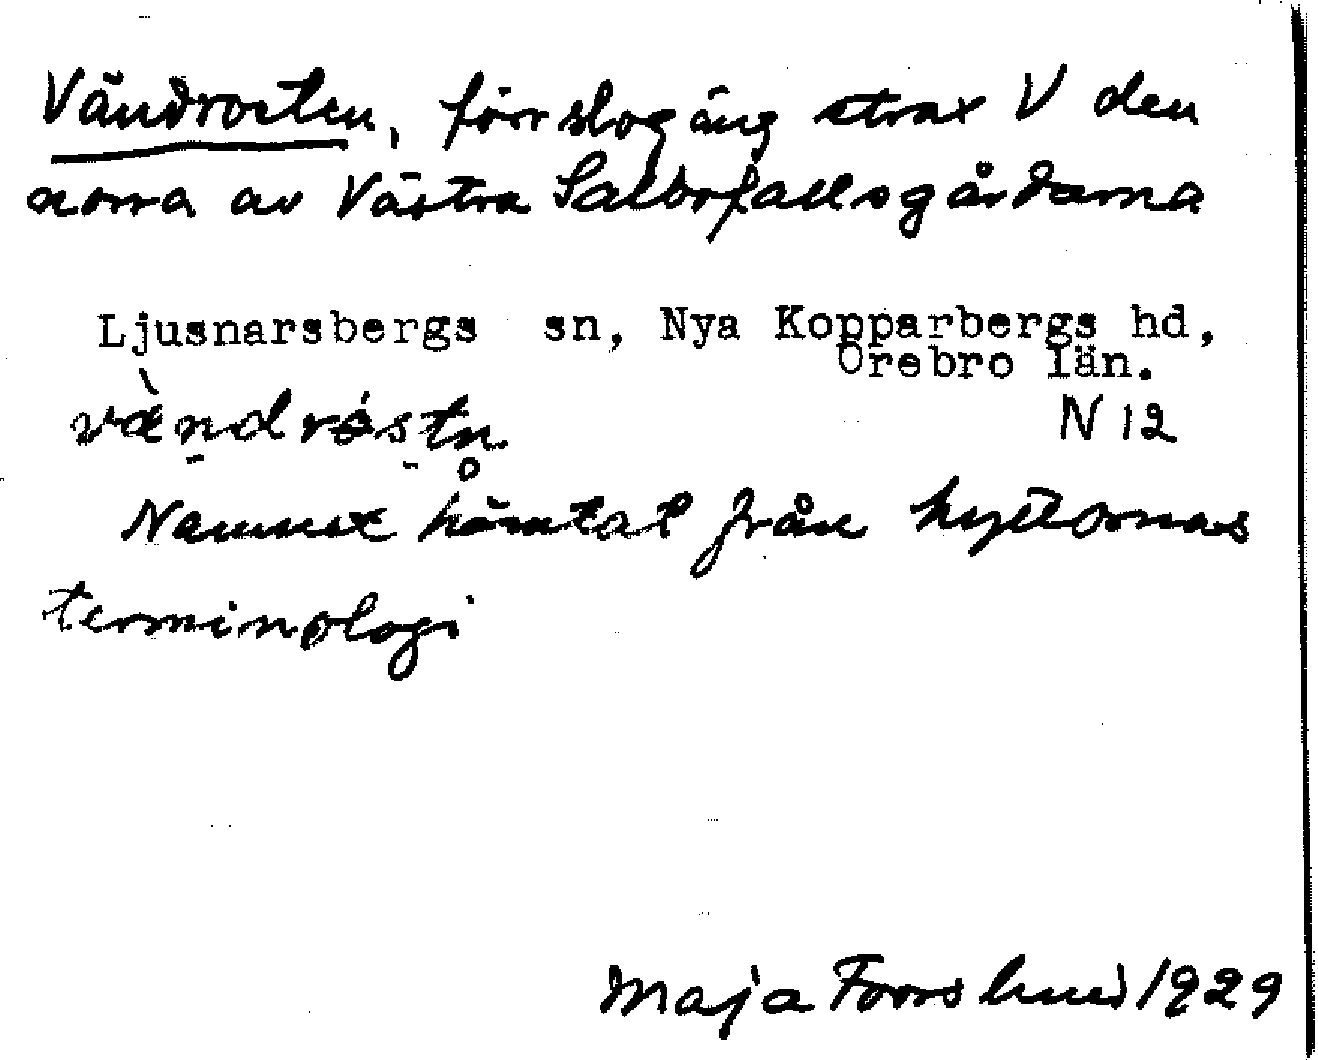 Vändrosten, förr slogäng strax V den
norra av Västra Salbofallsgårdarna
Ljusnarsbergs sn, Nya Kopparbergs hd,
Örebro län.
N 12
Namnet hämtat från hyttornas
terminologi
Maja Forslund 1929